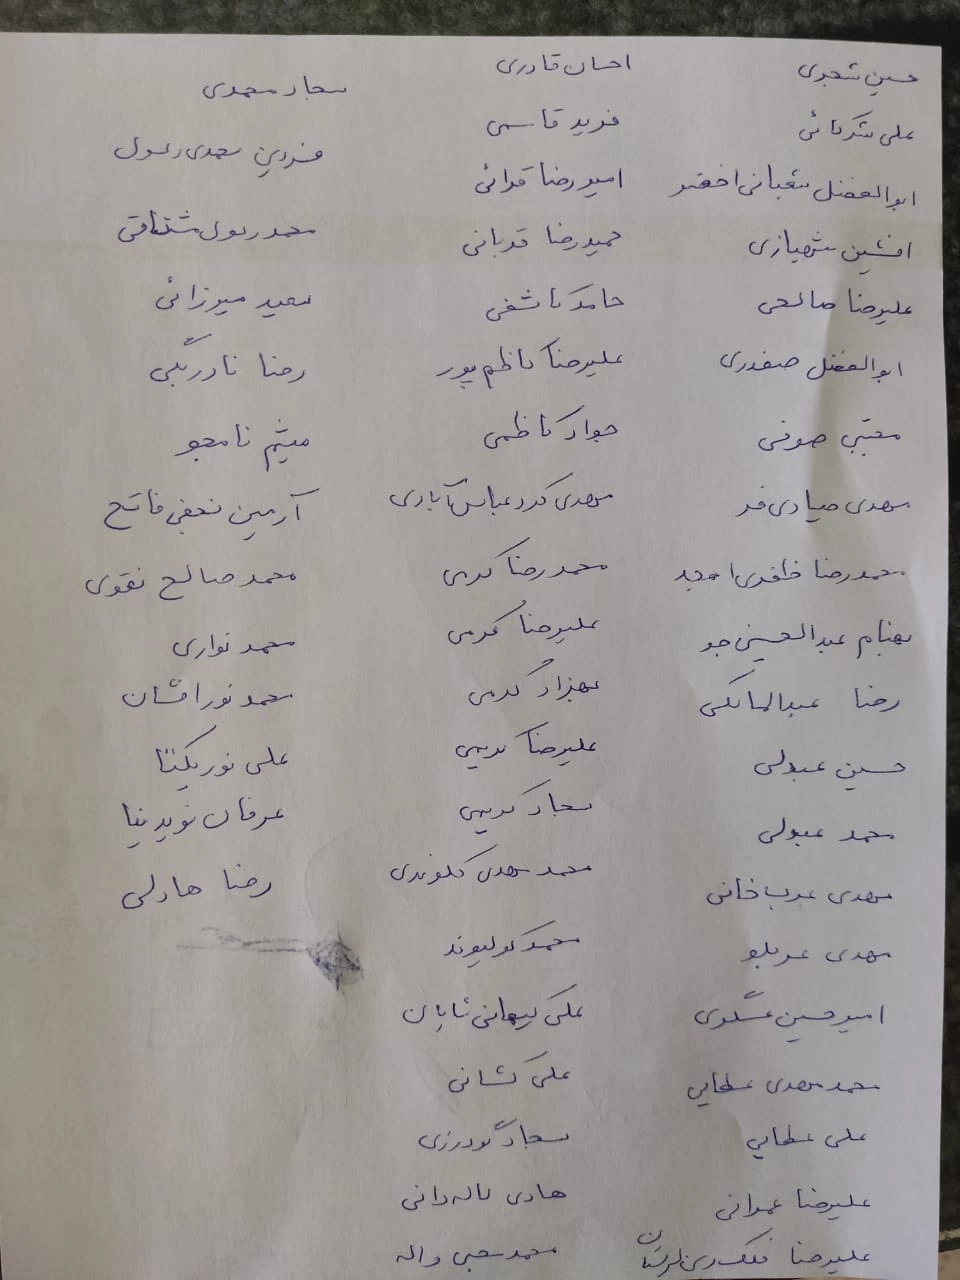 حسین شجری
علی شکرائی
ابوالفضل شعبانی اخضر
افشین شهبازی
علیرضا صالحی
ابوالفضل صفدری
مجتبی صوفی
مهدی صیادی فر
محمدرضا ظفری امجد
بهنام عبدالحسینی جو
رضا عبدالمالکی
حسین عبدلی
محمد عبدلی
مهدی عرب خانی
مهدی عربلو
امیرحسین عسگری
محمد مهدی عطایی
علی عطایی
علیرضا عمرانی
علیرضا فلک
احسان قادری
فرید قاسمی
امیررضا قرائی
حمیدرضا قربانی
حامد کاشفی
علیرضا کاظم پور
جواد کاظمی
مهدی کرد عباس آبادی
محمدرضا کرمی
علیرضا کرمی
بهزاد کرمی
علیرضا کریمی
سجاد کریمی
محمد مهدی کلوندی
محمد کولیوند
علی کیهانی تابان
علی کشانی
سجاد گودرزی
هادی لاله دانی
محمد محبی واله
سجاد محمدی
فرزین محمدی رسول
محمد رسول مشتاقی
سعید میرزائی
رضا نادر بیگی
میثم نامجو
آرمین نجفی فاتح
محمد صالح نقوی
محمد نواری
محمد نورافشان
علی نور یکتا
عرفان نوید نیا
رضا هادلی